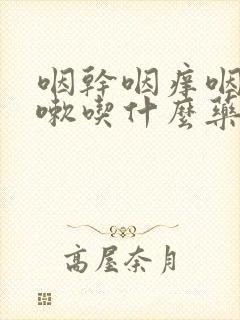 咽幹咽痒咽
嗽喫什麼藥
高屋奈月